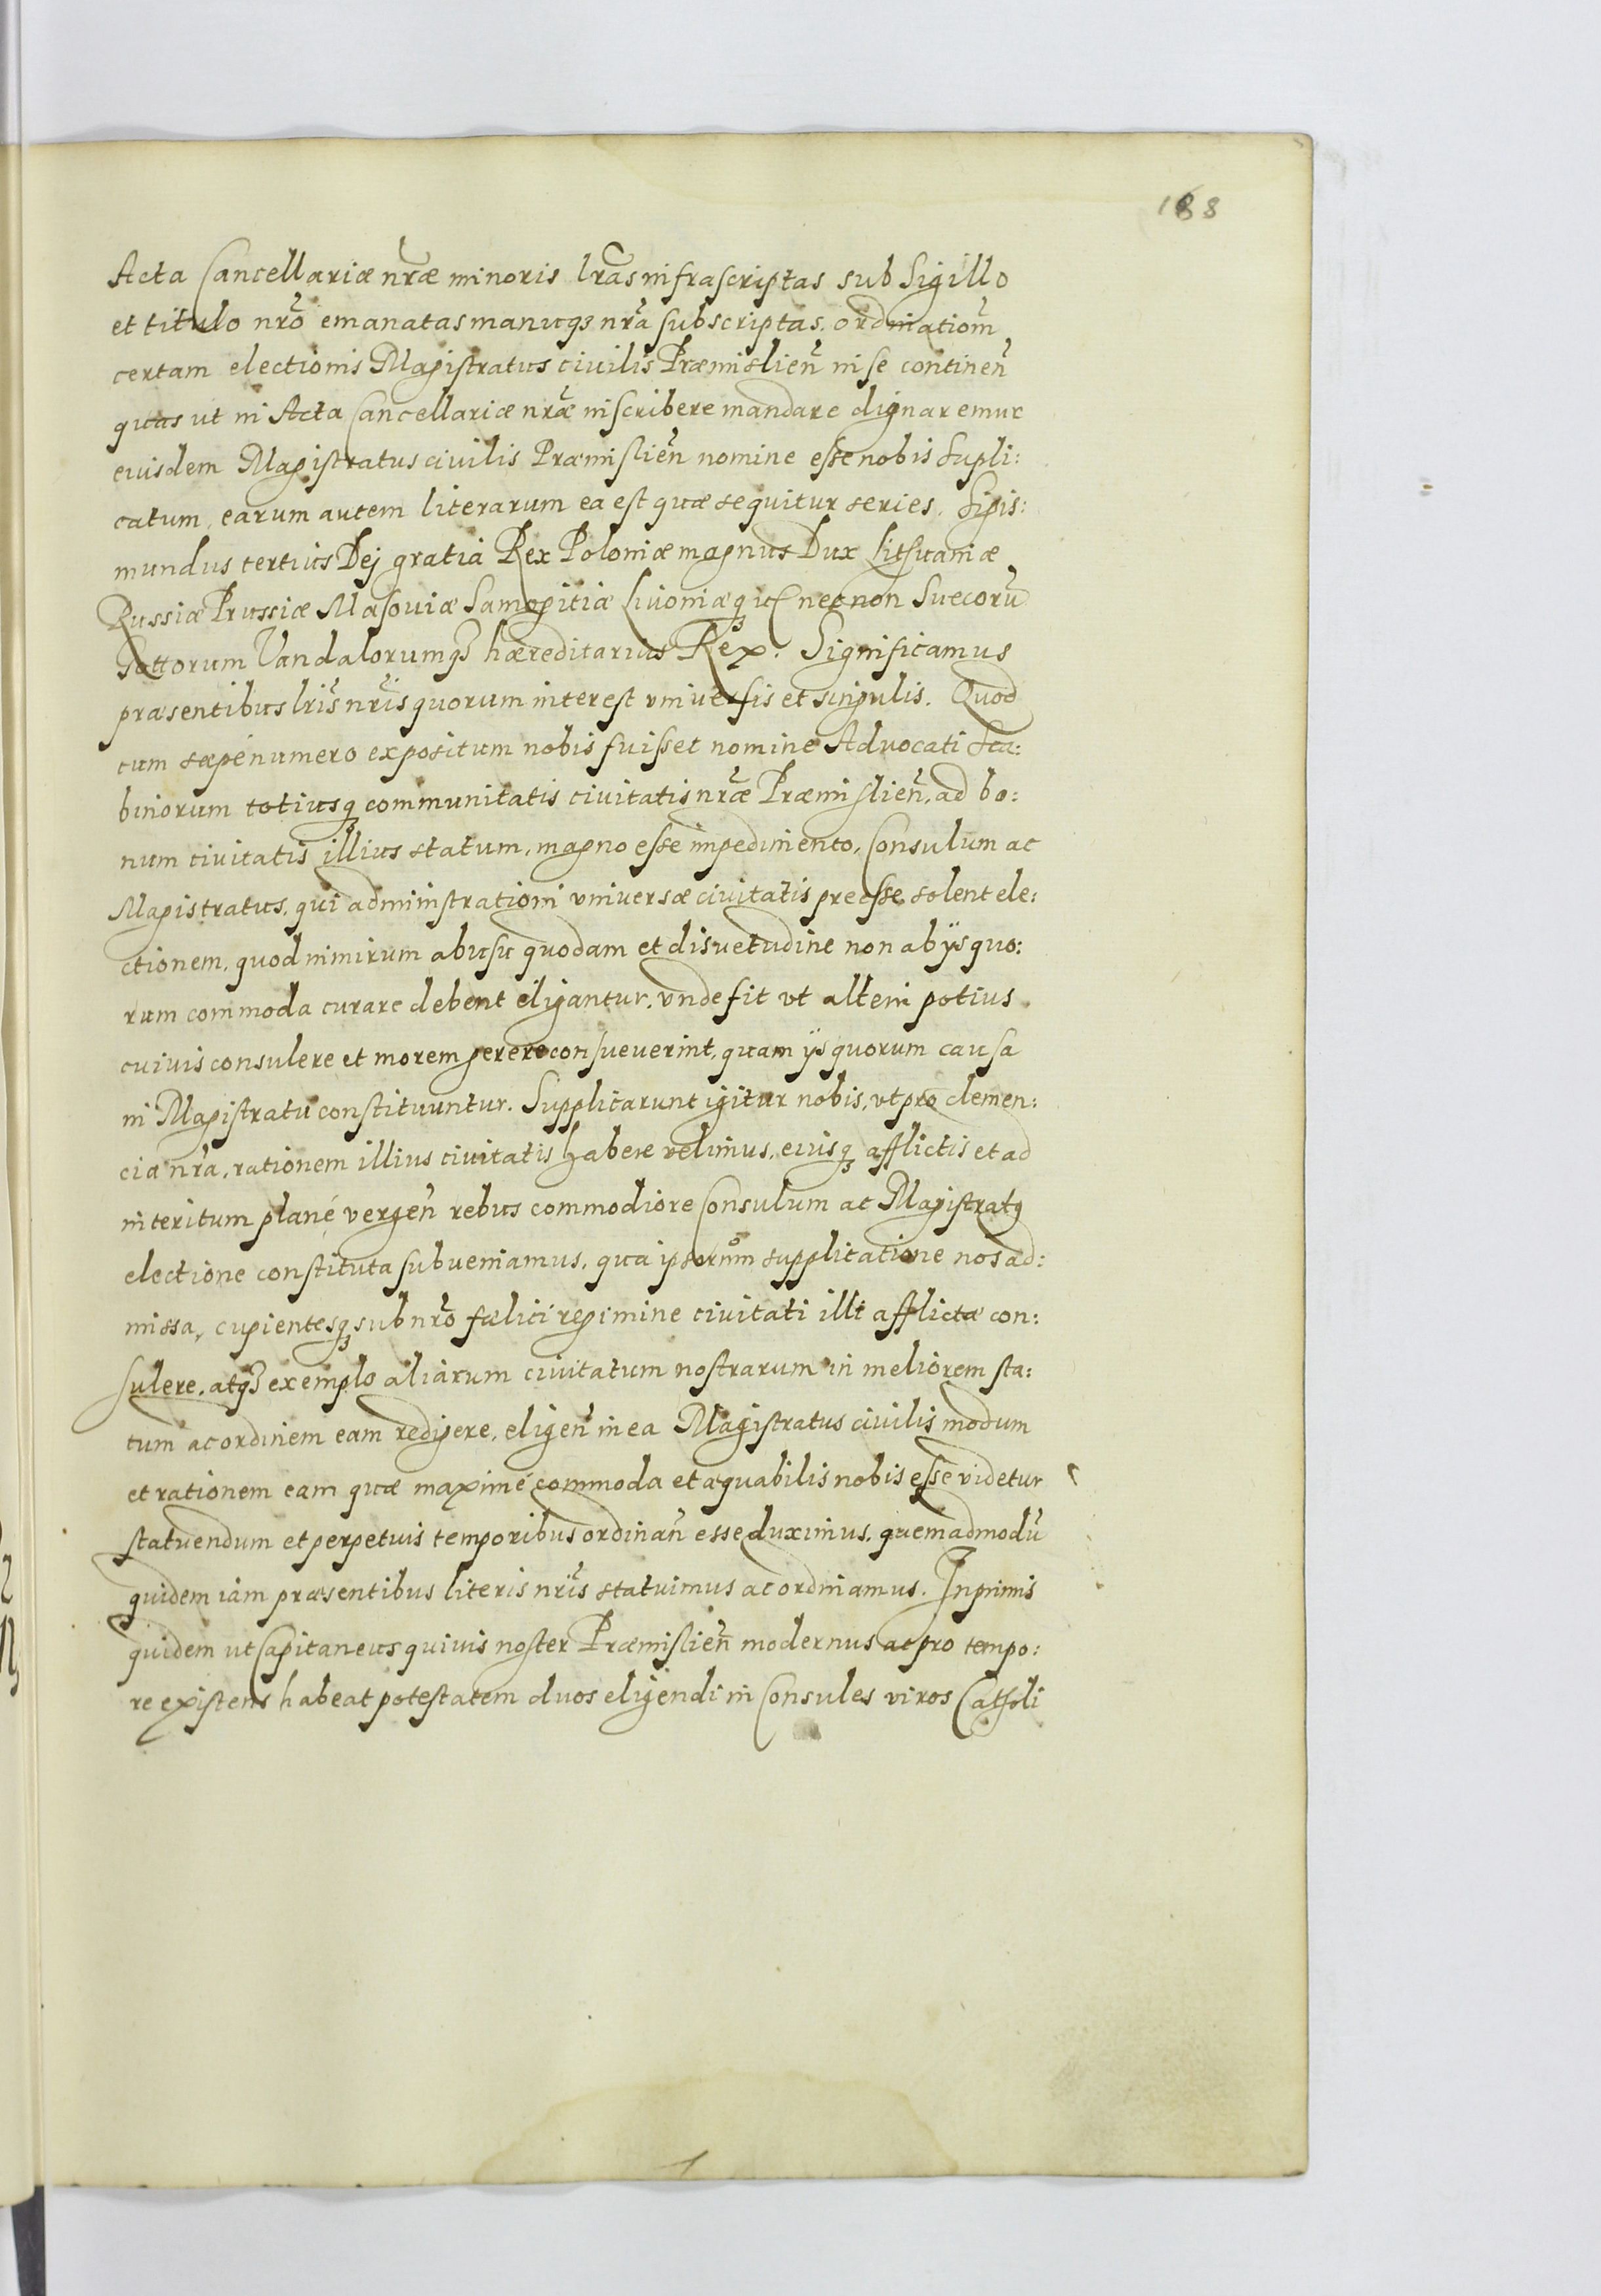 188
Acta Cancellariæ nr̃æ minoris lr̃as infrascriptas sub Sigillo
et titulo nr̃o emanatas manuqȝ nr̃a subscriptas. ordinatiom̃
certam electionis Magistratus ciuilis Præmislien̄ in se continen̄
quas ut in Acta Cancellariæ nr̃æ inscribere mandare dignaremur
eiusdem Magistratus ciuilis Præmislien̄ nomine esse nobis supli:
catum, earum autem literarum ea est quæ sequitur series. Sigis:
mundus tertius Dej gratia Rex Poloniæ magnus Dux Lithuaniæ
Russiæ Prussiæ Masouiæ Samogitiæ Liuoniæqȝ necnon Suecorū
Gottorum Vandalorumqȝ hæreditarius Rex. Significamus
præsentibus lr̃is nr̃is quorum interest vniuersis et singulis. Quod
cum sæpénumero expositum nobis fuisset nomine Aduocati Sca:
binorum totiusqȝ communitatis ciuitatis nr̃æ Præmislien̄, ad bo:
num ciuitatis illius statum, magno esse impedimento, Consulum ac
Magistratus, qui administrationi vniuersæ ciuitatis preesse solent ele:
ctionem, quod nimirum abusu quodam et disuetudine non ab ÿs quo:
rum commoda curare debent eligantur, vnde fit vt alteri potius
cuiuis consulere et morem gerere consueuerint, quam ÿs quorum causa
in Magistratu constituuntur. Supplicarunt igitur nobis, vt pro clemen:
cia nr̃a, rationem illius ciuitatis habere velimus, eiusqȝ afflictis et ad
interitum plané vergen̄ rebus commodiore Consulum ac Magistratꝯ
electione constituta subueniamus, qua ipsorum supplicatione nos ad:
missa, cupientesqȝ sub nr̃o fælici regimine ciuitati illi afflictæ con:
sulere, atqȝ exemplo aliarum ciuitatum nostrarum in meliorem sta:
tum ac ordinem eam redigere, eligen̄ in ea Magistratus ciuilis modum
et rationem eam quæ maximé commoda et æquabilis nobis esse videtur
statuendum et perpetuis temporibus ordinan̄ esse duximus, quemadmodū
quidem iam præsentibus literis nr̃is statuimus ac ordinamus. Inprimis
quidem ut Capitaneus quiuis noster Præmislien̄ modernus ac pro tempo:
re existens habeat potestatem duos eligendi in Consules viros Catholi